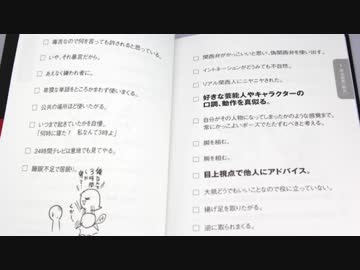 毒舌なので何を言っても許されると思っている。
いや、それ暴言だから。
あえなく嫌われ者に。
単發な単語をところかまわず使いまくる。
公共の場所ほど使いたがる。
いつまで起きていたかを自慢。
「何時に寝た? 私なんて3時よ」
24時間テレビは意地でも見てやる。
睡眠不足で居眠り。
関西弁がかっこいいと思い、偽関西弁を使い出す。
イントネーションがどうみても不自然。
リアル関西人にニヤニヤされた。
好きな芸能人やキャラクターの
口調、動作を真似る。
自分がその人物になってしまったかのような感覚まで。
常にかっこよいポーズでたたずむべきと考える。
胸を組む。
腕を組む。
目上視点で他人にアドバイス。
大抵どうでもいいことなので役に立っていない。
揚げ足を取りたがる。
逆に取られまくる。